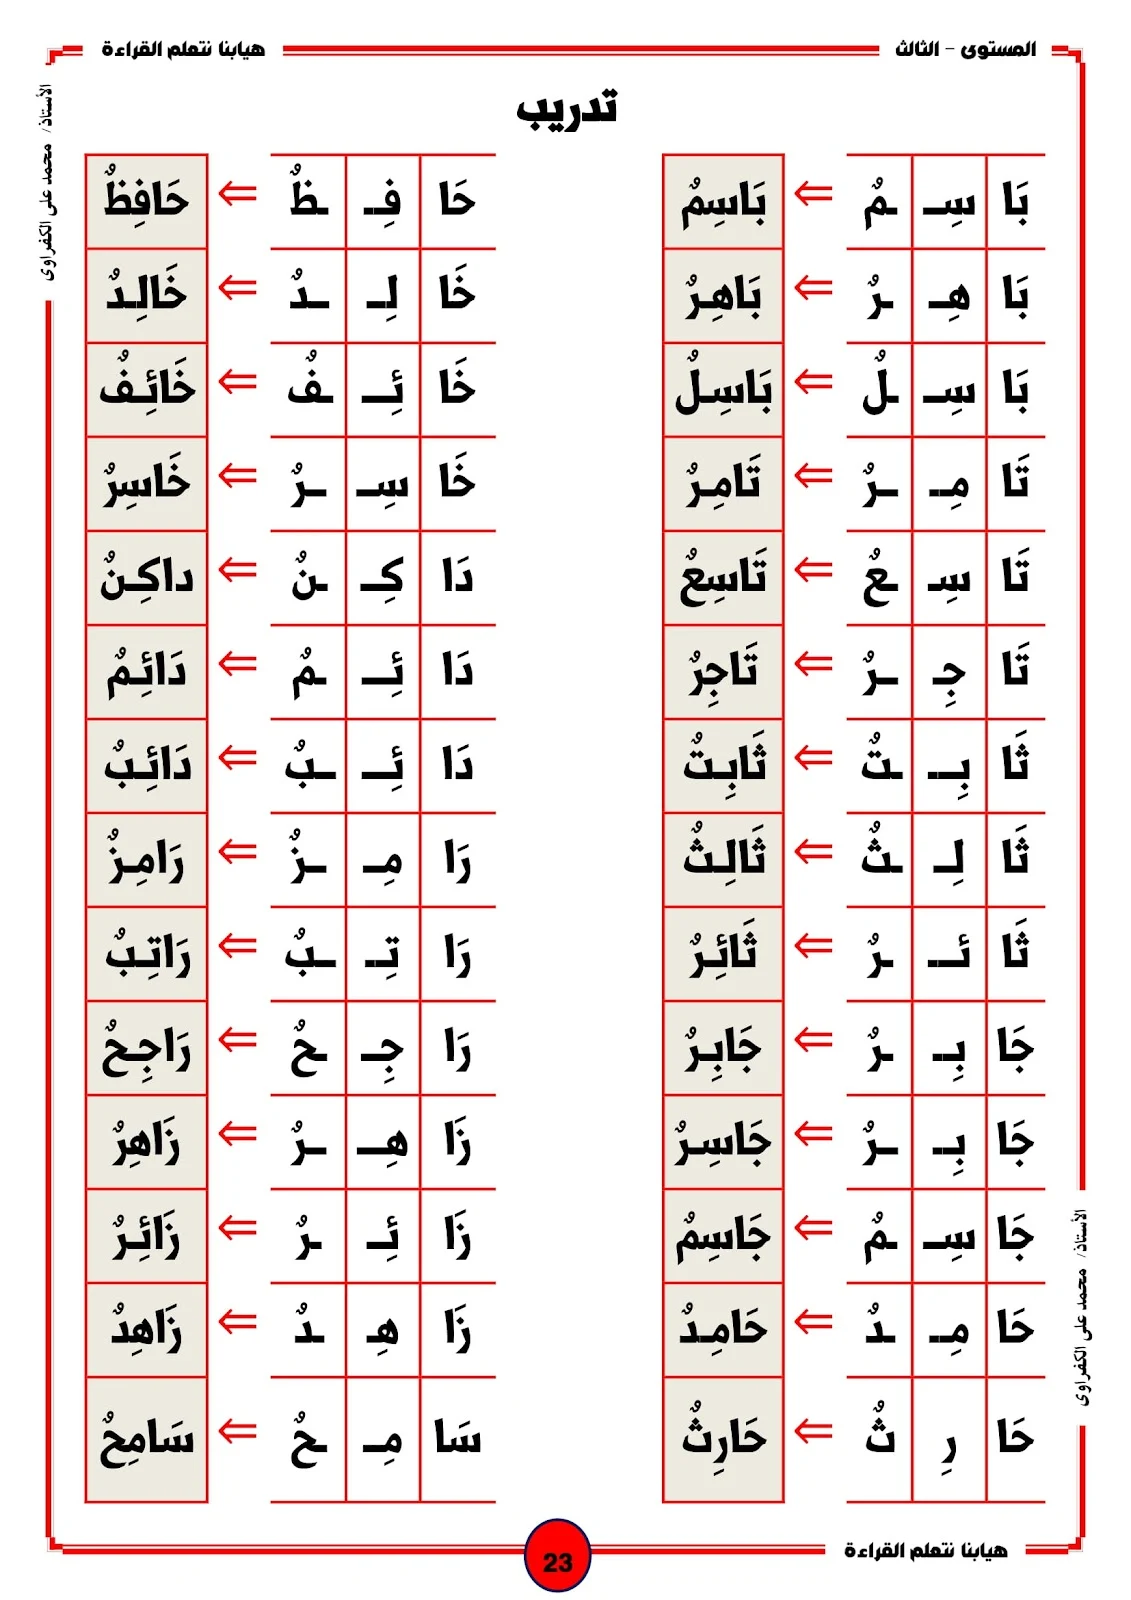 المستوى - الثالث
هيابنا نتعلم القراءة
الأستاذ/ محمد على الكفراوى
تدريب
بَا سِـ ـمٌ ⇐ بَاسِمٌ
بَا هِـ ـرٌ ⇐ بَاهِرٌ
بَا سِـ ـلٌ ⇐ بَاسِلٌ
تَا مِـ ـرٌ ⇐ تَامِرٌ
تَا سِـ ـعٌ ⇐ تَاسِعٌ
تَا جِـ ـرٌ ⇐ تَاجِرٌ
ثَا بِـ ـتٌ ⇐ ثَابِتٌ
ثَا لِـ ـثٌ ⇐ ثَالِثٌ
ثَا ئـ ـرٌ ⇐ ثَائِرٌ
جَا بِـ ـرٌ ⇐ جَابِرٌ
جَا بِـ ـرٌ ⇐ جَاسِرٌ
جَا سِـ ـمٌ ⇐ جَاسِمٌ
حَا مِـ ـدٌ ⇐ حَامِدٌ
حَا رِ ثٌ ⇐ حَارِثٌ
حَا فِـ ـظٌ ⇐ حَافِظٌ
خَا لِـ ـدٌ ⇐ خَالِدٌ
خَا ئِـ ـفٌ ⇐ خَائِفٌ
خَا سِـ ـرٌ ⇐ خَاسِرٌ
دَا كِـ ـنٌ ⇐ داكِنٌ
دَا ئِـ ـمٌ ⇐ دَائِمٌ
دَا ئِـ ـبٌ ⇐ دَائِبٌ
رَا مِـ ـزٌ ⇐ رَامِزٌ
رَا تِـ ـبٌ ⇐ رَاتِبٌ
رَا جِـ ـحٌ ⇐ رَاجِحٌ
زَا هِـ ـرٌ ⇐ زَاهِرٌ
زَا ئِـ ـرٌ ⇐ زَائِرٌ
زَا هِـ ـدٌ ⇐ زَاهِدٌ
سَا مِـ ـحٌ ⇐ سَامِحٌ
الأستاذ/ محمد على الكفراوى
هيابنا نتعلم القراءة
23